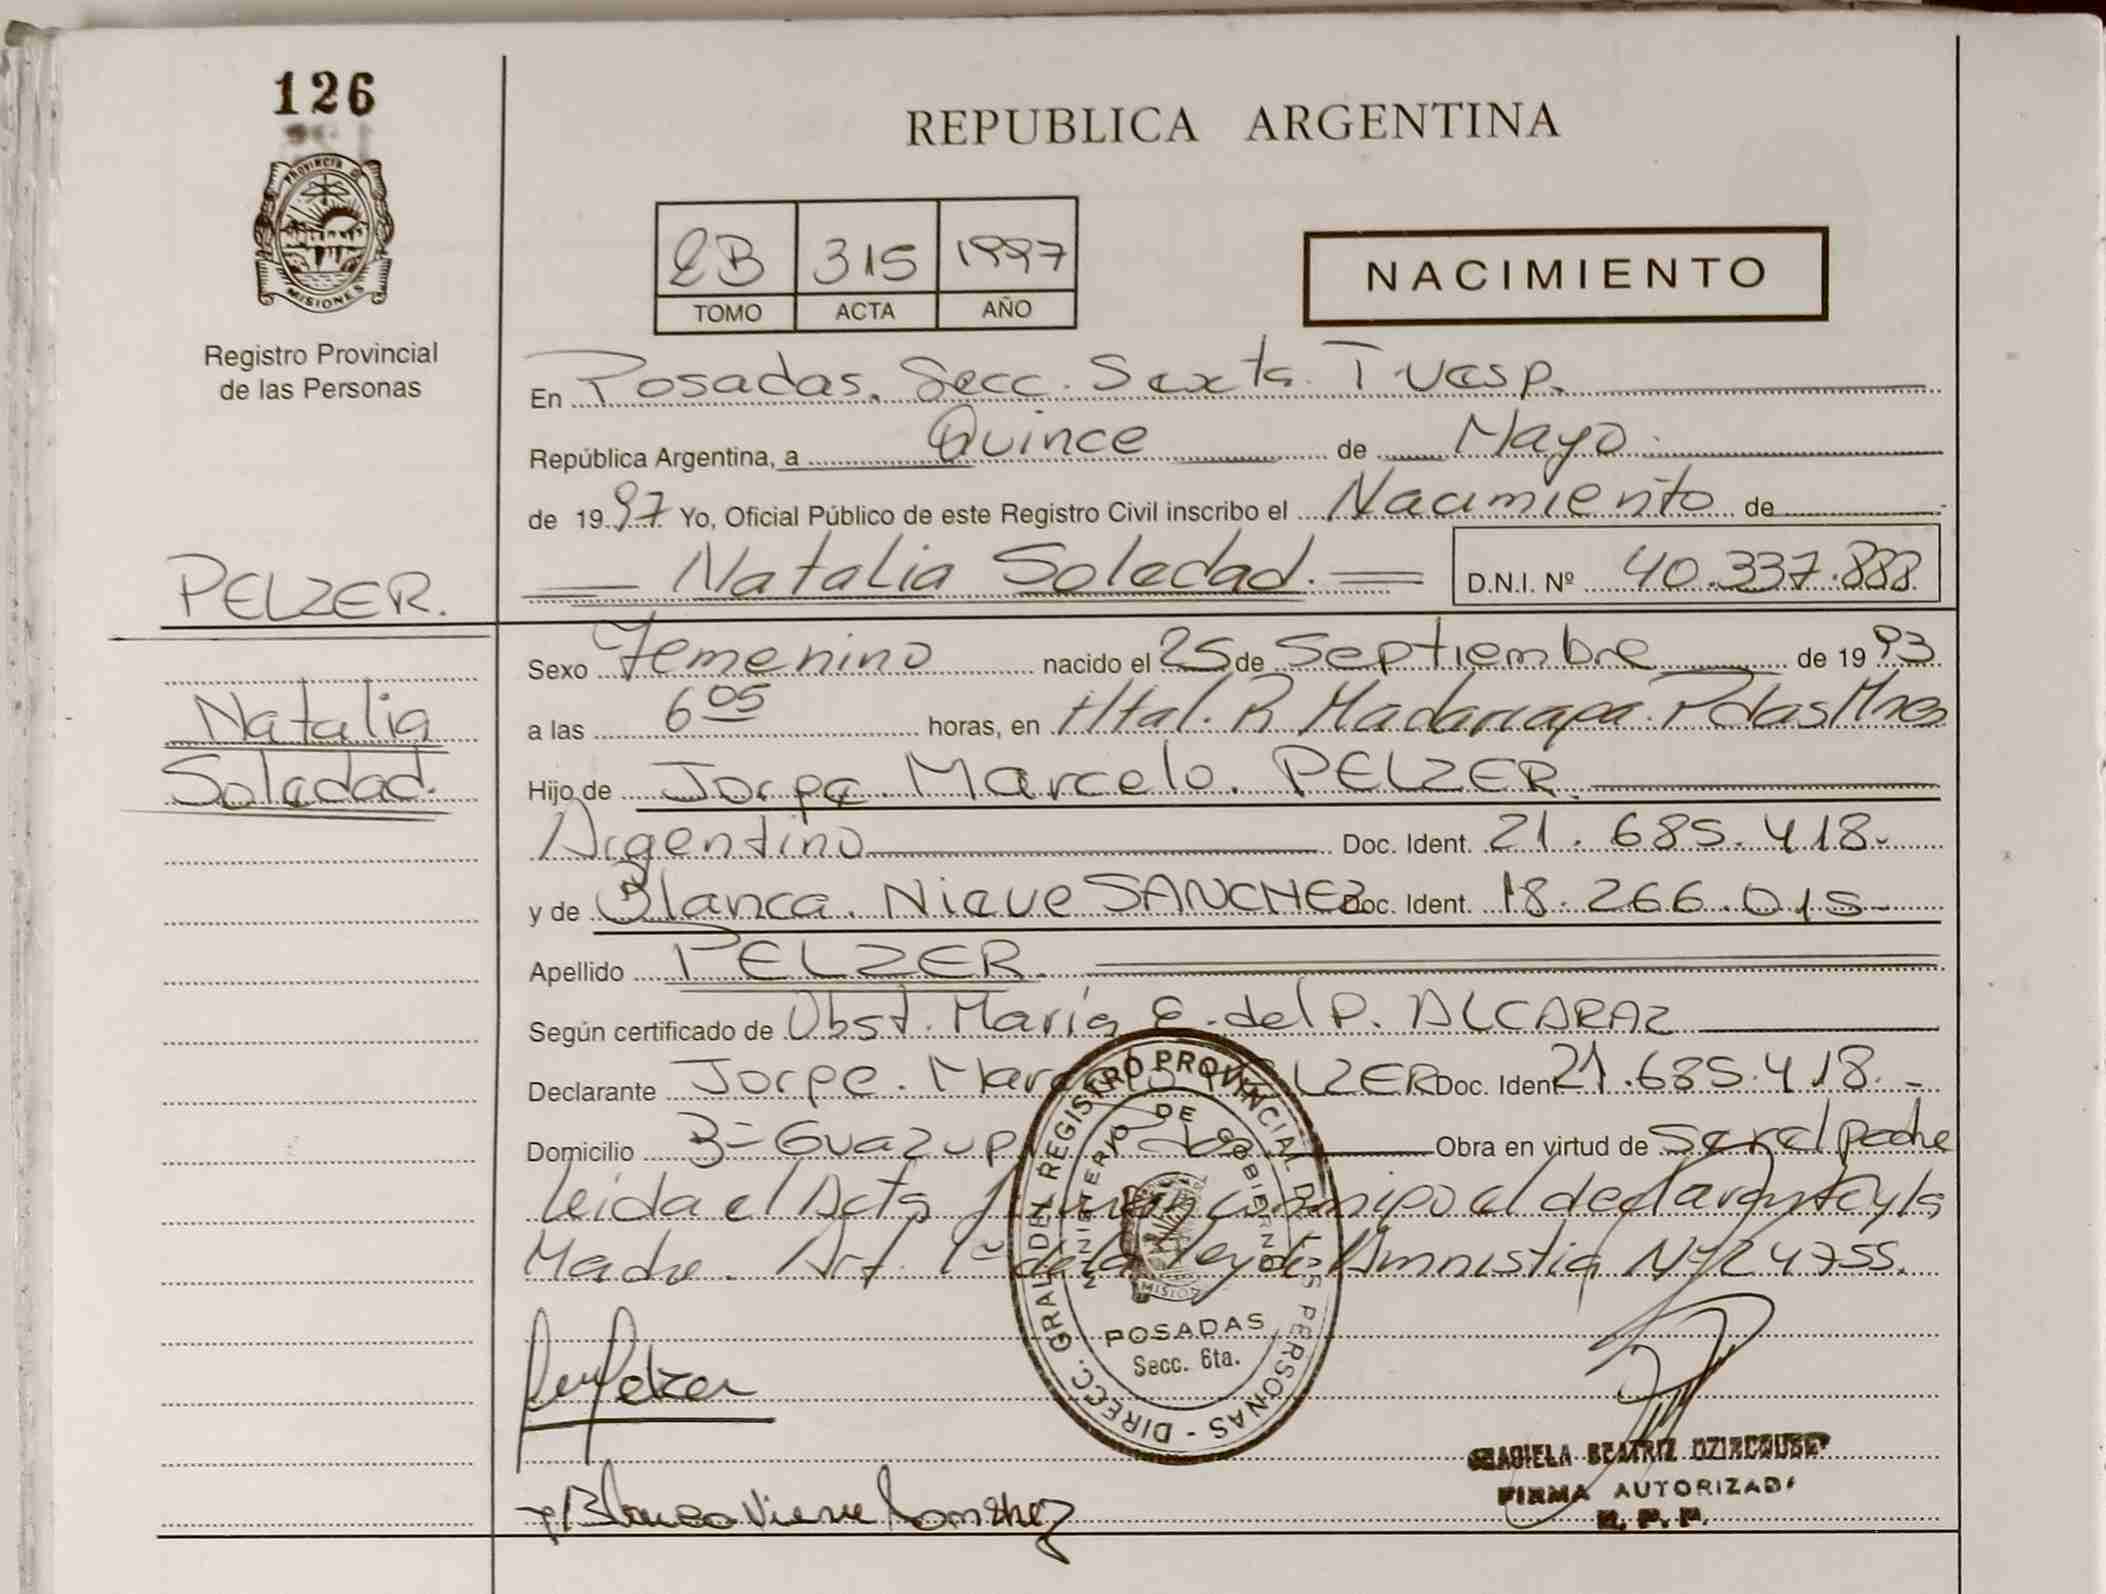 126
REPUBLICA ARGENTINA
PROVINCIA DE
MISIONES
Registro Provincial
de las Personas
2B 315 1997
TOMO ACTA AÑO
NACIMIENTO
En Posadas. Secc. Sexta.
República Argentina, a Quince de Mayo
de 1997 Yo, Oficial Público de este Registro Civil inscribo el Nacimiento de
Natalia Soledad. D.N.I. Nº 40.337.888
PELZER.
Natalia
Soledad.
Sexo Femenino nacido el 25 de Septiembre de 1993
a las 6 05 horas, en Htal. R Madariaga. Pdas Mnes
Hijo de Jorge. Marcelo. PELZER.
Argentino Doc. Ident. 21.685.418.-
y de Blanca. Nieve SANCHEZ Doc. Ident. 18.266.015.-
Apellido PELZER.
Según certificado de Obst. María E. del P. ALCARAZ
Declarante Jorge. PELZER Doc. Ident 21.685.418.-
Domicilio Bº Obra en virtud de ser el padre
leida el Acta firman conmigo el declarante y la
Madre. Art. 1º de la Ley de Amnistia Nº 24755.
DIRECC. GRAL. DEL REGISTRO PROVINCIAL DE LAS PERSONAS -
MINISTERIO DE GOBIERNO
MISIONES
POSADAS
Secc. 6ta.
Pelzer
Blanca Nieve Sanchez
GRACIELA BEATRIZ
FIRMA AUTORIZADA
R. P. P.